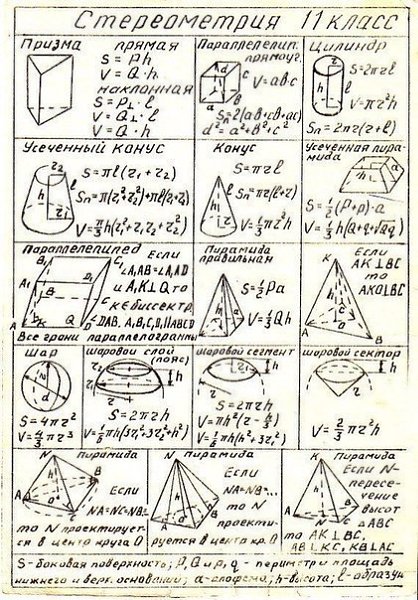 Стереометрия 11 класс
Призма
прямая
S = Ph
V = Q·h
наклонная
S = P⊥·l
V = Q⊥·l
V = Q·h
Параллелепип.
прямоуг.
V = abc
Sп=2(ab+cb+ac)
d² = a²+b²+c²
Цилиндр
S=2πrl
V=πr²h
Sп = 2πr(r+l)
Усеченный конус
S=πl(r₁+r₂)
Sп=π(r₁²+r₂²)+πl(r₁+r₂)
V=π/3 h(r₁²+r₁r₂+r₂²)
Конус
S=πrl
Sп=πr(l+r)
V=1/3 πr²h
Усеченная пира-
мида
S=1/2(P+p)·a
V=1/3 h(Q+q+√Qq)
Параллелепипед
Если
∠A₁AB=∠A₁AD
и A₁K⊥Q то
K∈биссектр.
∠DAB. A₁B₁C₁D₁∥ABCD
Все грани параллелограммы
Пирамида
правильная
S=1/2 Pa
V=1/3 Qh
Если
AK⊥BC
то
AKO⊥BC
Шар
S=4πr²
V=4/3 πr³
Шаровой слой
(пояс)
S=2πrh
V=1/6 πh(3r₁²+3r₂²+h²)
Шаровой сегмент
S=2πrh
V=πh²(r-h/3)
V=1/6 πh(h²+3r₁²)
Шаровой сектор
V=2/3 πr²h
Пирамида
Если
NA=NC=NB=...
то N проектирует-
ся в центр круга O
Пирамида
Если
NA=NB=...
то N
проекти-
руется в центр кр. O
Пирамида
Если N-
пересе-
чение
высот
△ABC
то AK⊥BC,
AB⊥KC, KB⊥AC
S-боковая поверхность; P,Q и p,q - периметр и площадь
нижнего и верх. оснований; a-апофема; h-высота; l-образующ